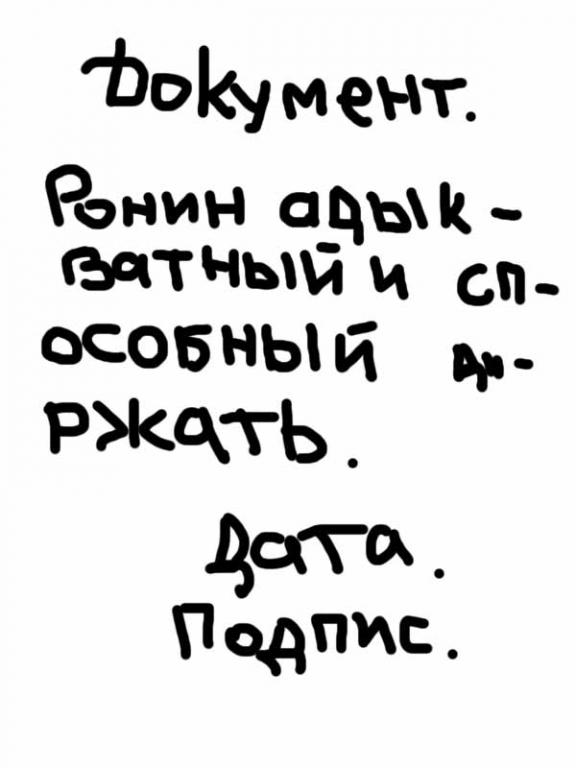 Документ.
Ронин адык-
ватный и сп-
особный ди-
ржать.
Дата.
Подпис.